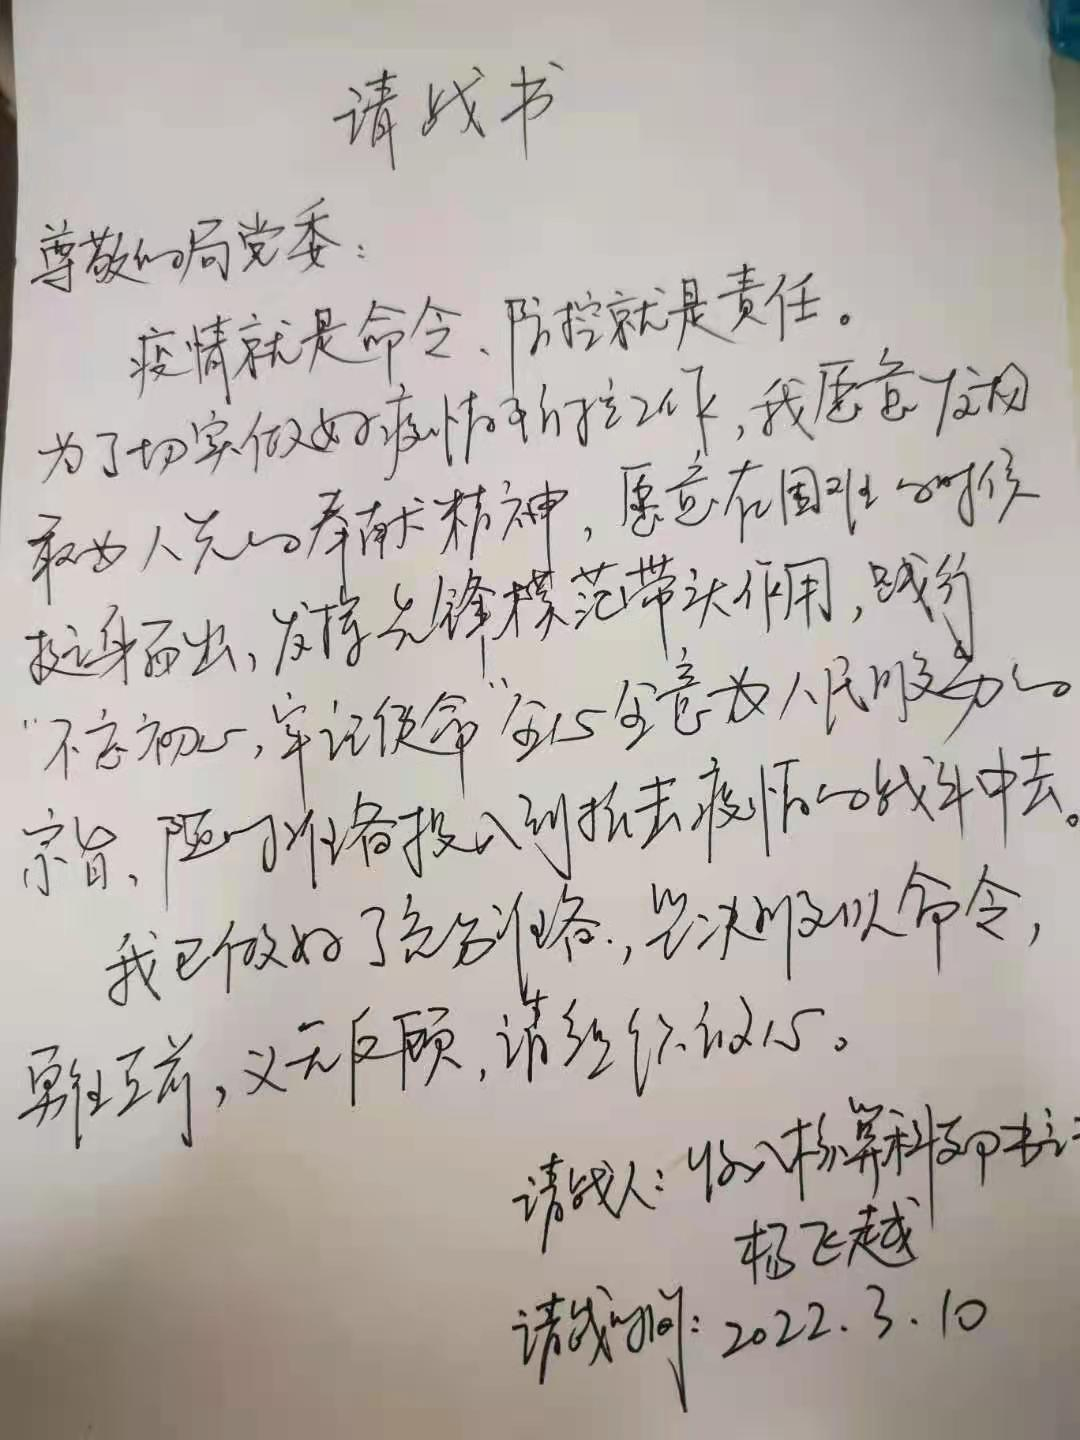 请战书
尊敬的局党委：
疫情就是命令、防控就是责任。
为了切实做好疫情防控工作，我愿意发扬
敢为人先的奉献精神，愿意在困难的时候
挺身而出，发挥先锋模范带头作用，践行
“不忘初心，牢记使命”全心全意为人民服务的
宗旨、随时准备投入到抗击疫情的战斗中去。
我已做好了充分准备，坚决服从命令，
勇往直前，义无反顾，请组织放心。
请战人：收入核算科支部书记
杨飞越
请战时间：2022.3.10